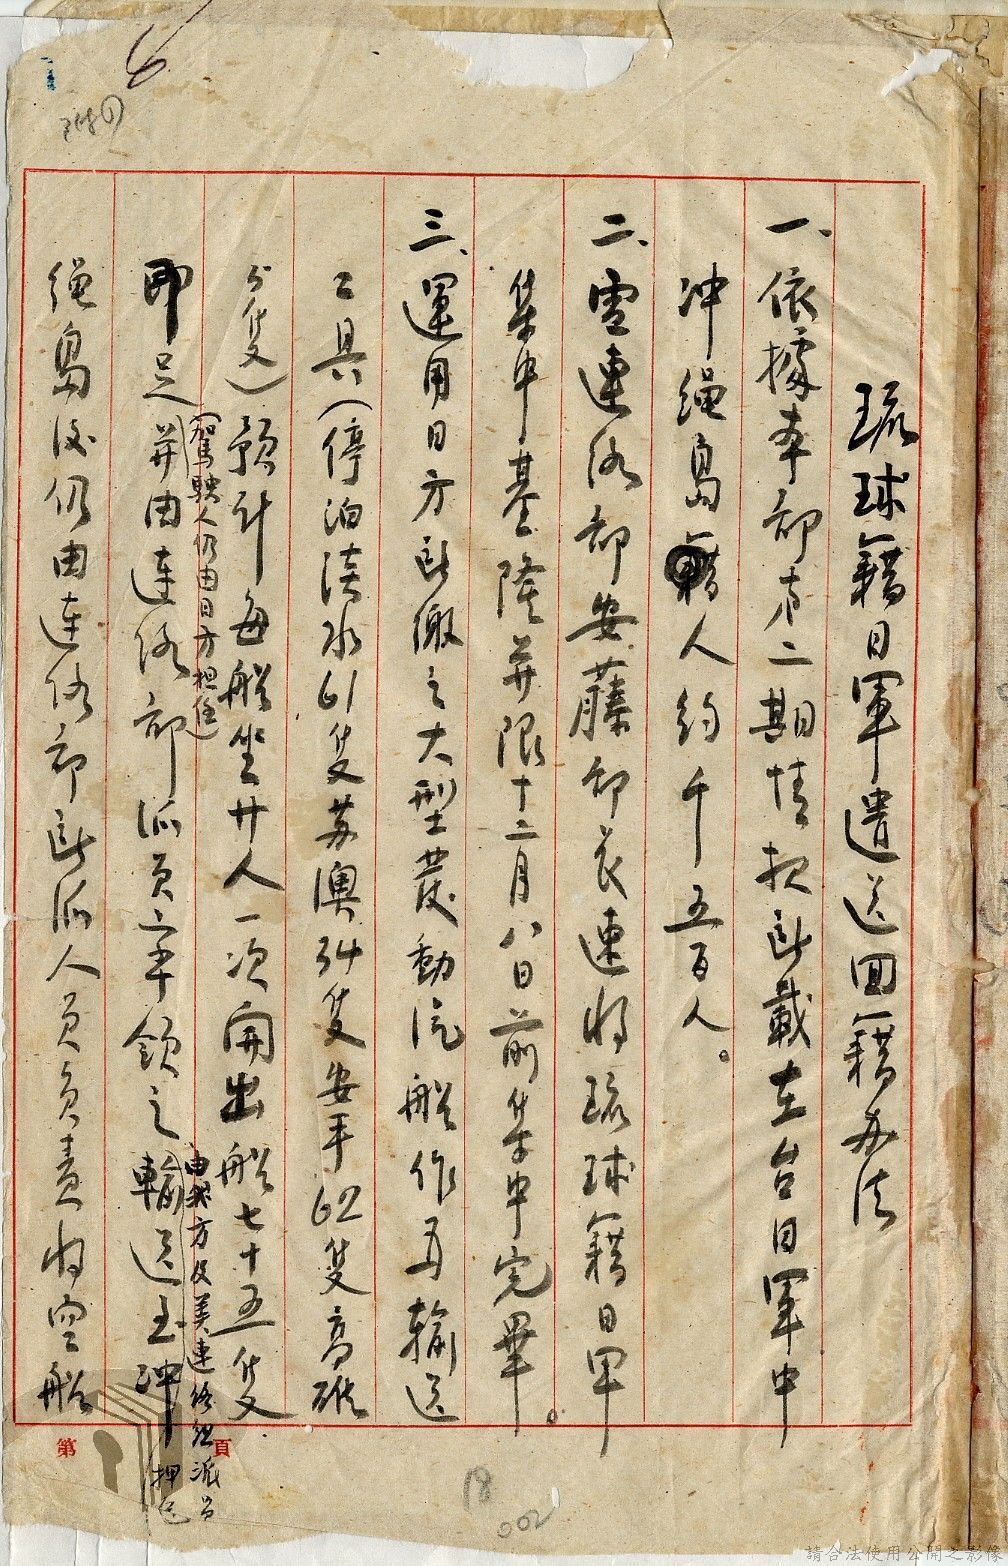 附(1)
琉球籍日軍遣送回籍办法
一、依據本部才二期情报所載在台日軍中
沖繩島籍人約千五百人。
二、電連絡部安藤部長速将琉球籍日軍
集中基隆并限十二月八日前集中完畢。
三、運用日方所繳之大型發動汽船作為輸送
工具（停泊淡水61隻蘇澳34隻安平62隻高雄
5隻）預計每船坐廿人一次開出船七十五隻
即足（駕駛人仍由日方担任）并由連絡部派員率領之輸送至沖
由我方及美連絡組派員押運
繩島後仍由連絡部所派人員負責将空船
第 頁
18
002
請合法使用公開之影像